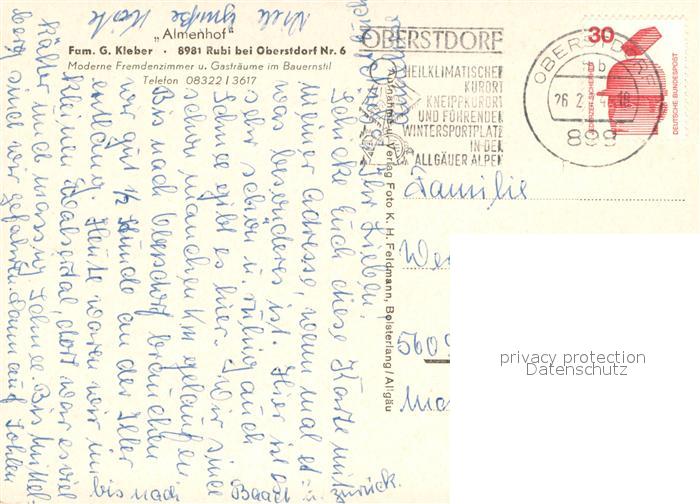 „Almenhof"
Fam. G. Kleber · 8981 Rubi bei Oberstdorf Nr. 6
Moderne Fremdenzimmer u. Gasträume im Bauernstil
Telefon 08322 / 3617
OBERSTDORF
HEILKLIMATISCHER
KURORT
KNEIPPKURORT
UND FÜHRENDER
WINTERSPORTPLATZ
IN DEN
ALLGÄUER ALPEN
OBERSTDORF
26.2.
899
30
DEUTSCHE BUNDESPOST
Aufnahme u. Verlag Foto K. H. Feldmann, Bolsterlang/Allgäu
Familie
We
560
privacy protection
Datenschutz
Ihr Lieben,
Schicke Euch diese Karte mit
meiner Adresse, wenn mal et
was besonderes ist. Hier ist es
sehr schön u. ruhig, auch
Schnee gibt es hier. Wir sind
schon manchen km gelaufen
Bis nach Oberstdorf brauchen
wir gut ½ Stunde an der Iller
entlang. Heute waren wir im
kleinen Walsertal, dort war es viel
kälter und massig Schnee. Bis Mittel-
berg sind wir gefahren dann auf Sohlen
bis nach Baad u. zurück.
Viele Grüße